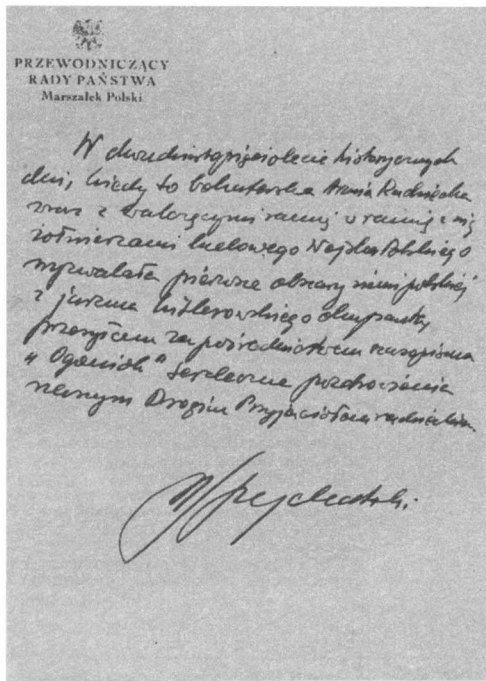 PRZEWODNICZĄCY
RADY PAŃSTWA
Marszałek Polski
W dwudziestopięciolecie historycznych
dni, kiedy to bohaterska Armia Radziecka
wraz z walczącymi ramię w ramię z nią
żołnierzami ludowego Wojska Polskiego
wyzwalała pierwsze obszary ziemi polskiej
z jarzma hitlerowskiego okupanta,
przesyłam za pośrednictwem czasopisma
"Ogoniok" serdeczne pozdrowienia
naszym Drogim Przyjaciołom radzieckim.
M Spychalski.